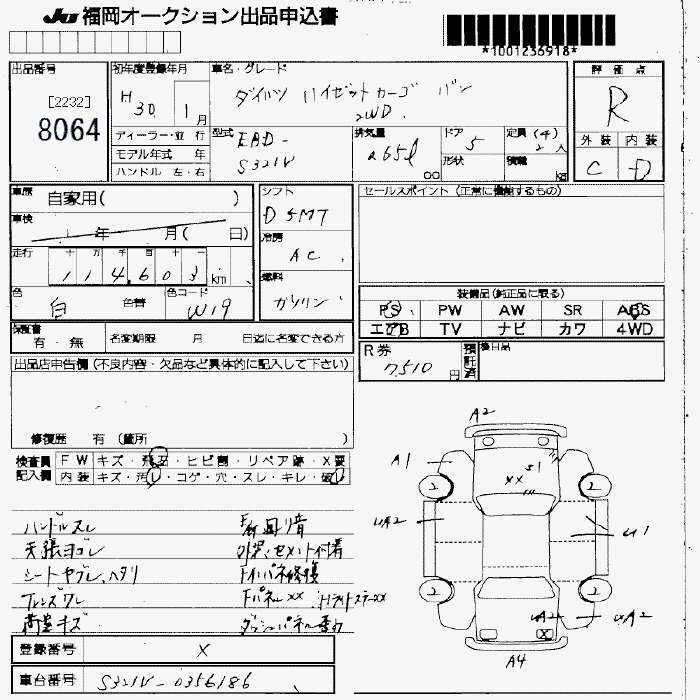 JU 福岡オークション出品申込書
*1001236918*
出品番号
[2232]
8064
初年度登録年月
H 30 1月
ディーラー・並行
モデル年式 年
ハンドル 左・右
車名・グレード
ダイハツ ハイゼットカーゴ バン
2WD
型式 EBD-
S321V
排気量
ドア 5
形状
定員 (4)
2人
積載 kg
評価点
R
外装 内装
C D
車歴 自家用( )
車検
年 月( 日)
走行 十 万 千 百 十
114,603 km
色 白 色替
色コード W19
シフト
D 5MT
冷房
AC
燃料
ガソリン
セールスポイント (正常に機能するもの)
装備品(純正品に限る)
PS PW AW SR ABS
エアB TV ナビ カワ 4WD
保証書
有・無
名変期限 月 日迄に名変できる方
R券
7510円
預託済
後日品
出品店申告欄(不良内容・欠品など具体的に記入して下さい)
修復歴 有 (箇所 )
検査員
記入欄
FW キズ・飛石・ヒビ割・リペア跡・X要
内装 キズ・汚れ・コゲ・穴・スレ・キレ・破れ
ハンドルスレ
天張ヨゴレ 外装セメント付着
シートヤブレ、ヘタリ
荷室キズ
A2
A1
S1
XX
2 2
UA2
U1
2 2
UA2 UA2
X
A4
登録番号 X
車台番号 S321V-0356186